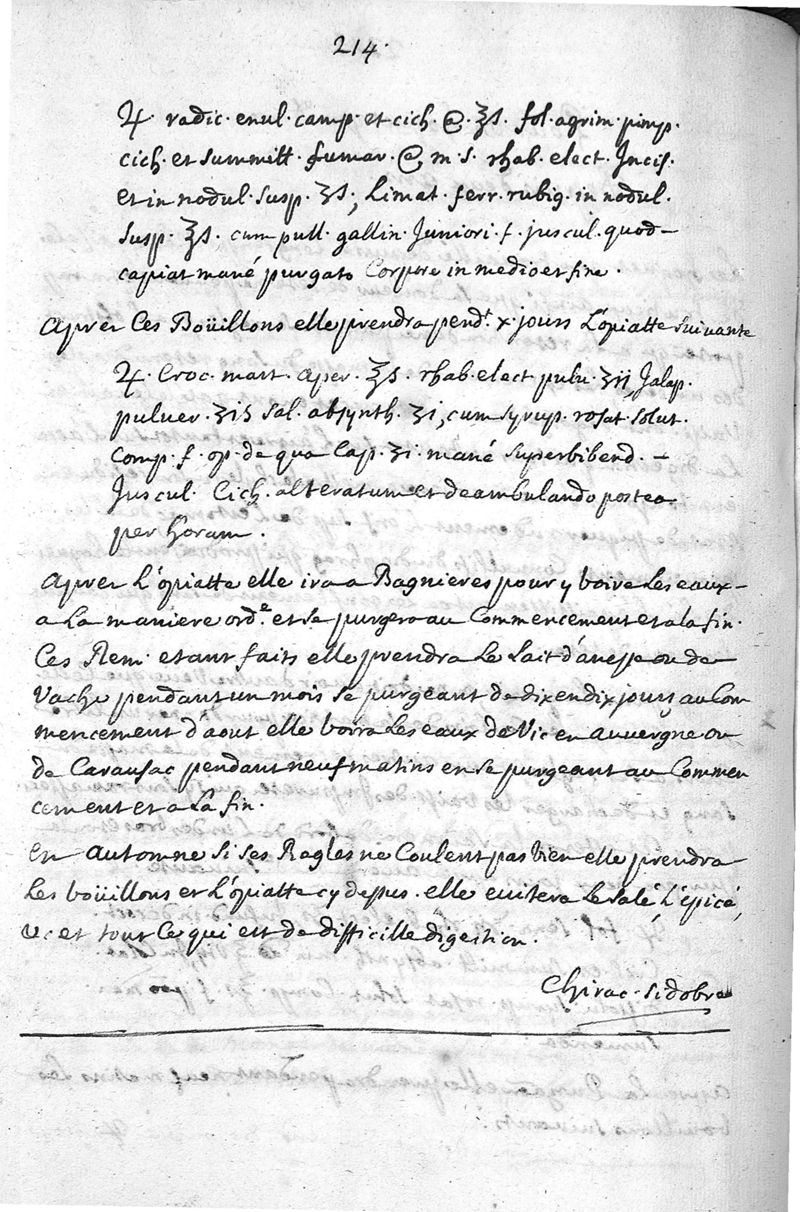 214.
♃. radic. enul. camp. et cich. @. ʒs. fol. agrim. pimp.
cich. et summitt. fumar. @ m. s. rhab. elect. Incis.
et in nodul. susp. ʒs; Limat. ferr. rubig. in nodul.
susp. ʒs. cum pull. gallin. Juniori. f. juscul. quod
capiat mané purgato Corpore in medio et fine.
aprer Ces Boüillons elle prendra pendt. x. jours L'opiatte suivante
♃. Croc. mart. aper. ℥s. rhab. elect pulv. ʒii, Jalap.
pulver. ʒis sal. absynth. ʒi, cum syrup. rosat. solut.
comp. f. op. de qua Cap. ʒi. mané superbibend.
Juscul. Cich. alteratum et deambulando postea
per horam.
aprer L'opiatte elle ira a Bagnieres pour y boire Les eaux
a La maniere orde. et se purgera au Commencement et a la fin.
Ces Rem. etant faits elle prendra Le Lait d'anesse ou de
vache pendant un mois se purgeant de dix en dix jours au Com
mencement d'aout elle boira Les eaux de Vic en auvergne ou
de Caransac pendant neuf matins en se purgeant au Commen
cement et a La fin.
en automne si ses Ragles ne Coulent pas bien elle prendra
Les boüillons et L'opiatte cy dessus. elle evitera Le salé, L'épicé,
&c et tout Ce qui est de difficille digestion.
Chirac. sidobre